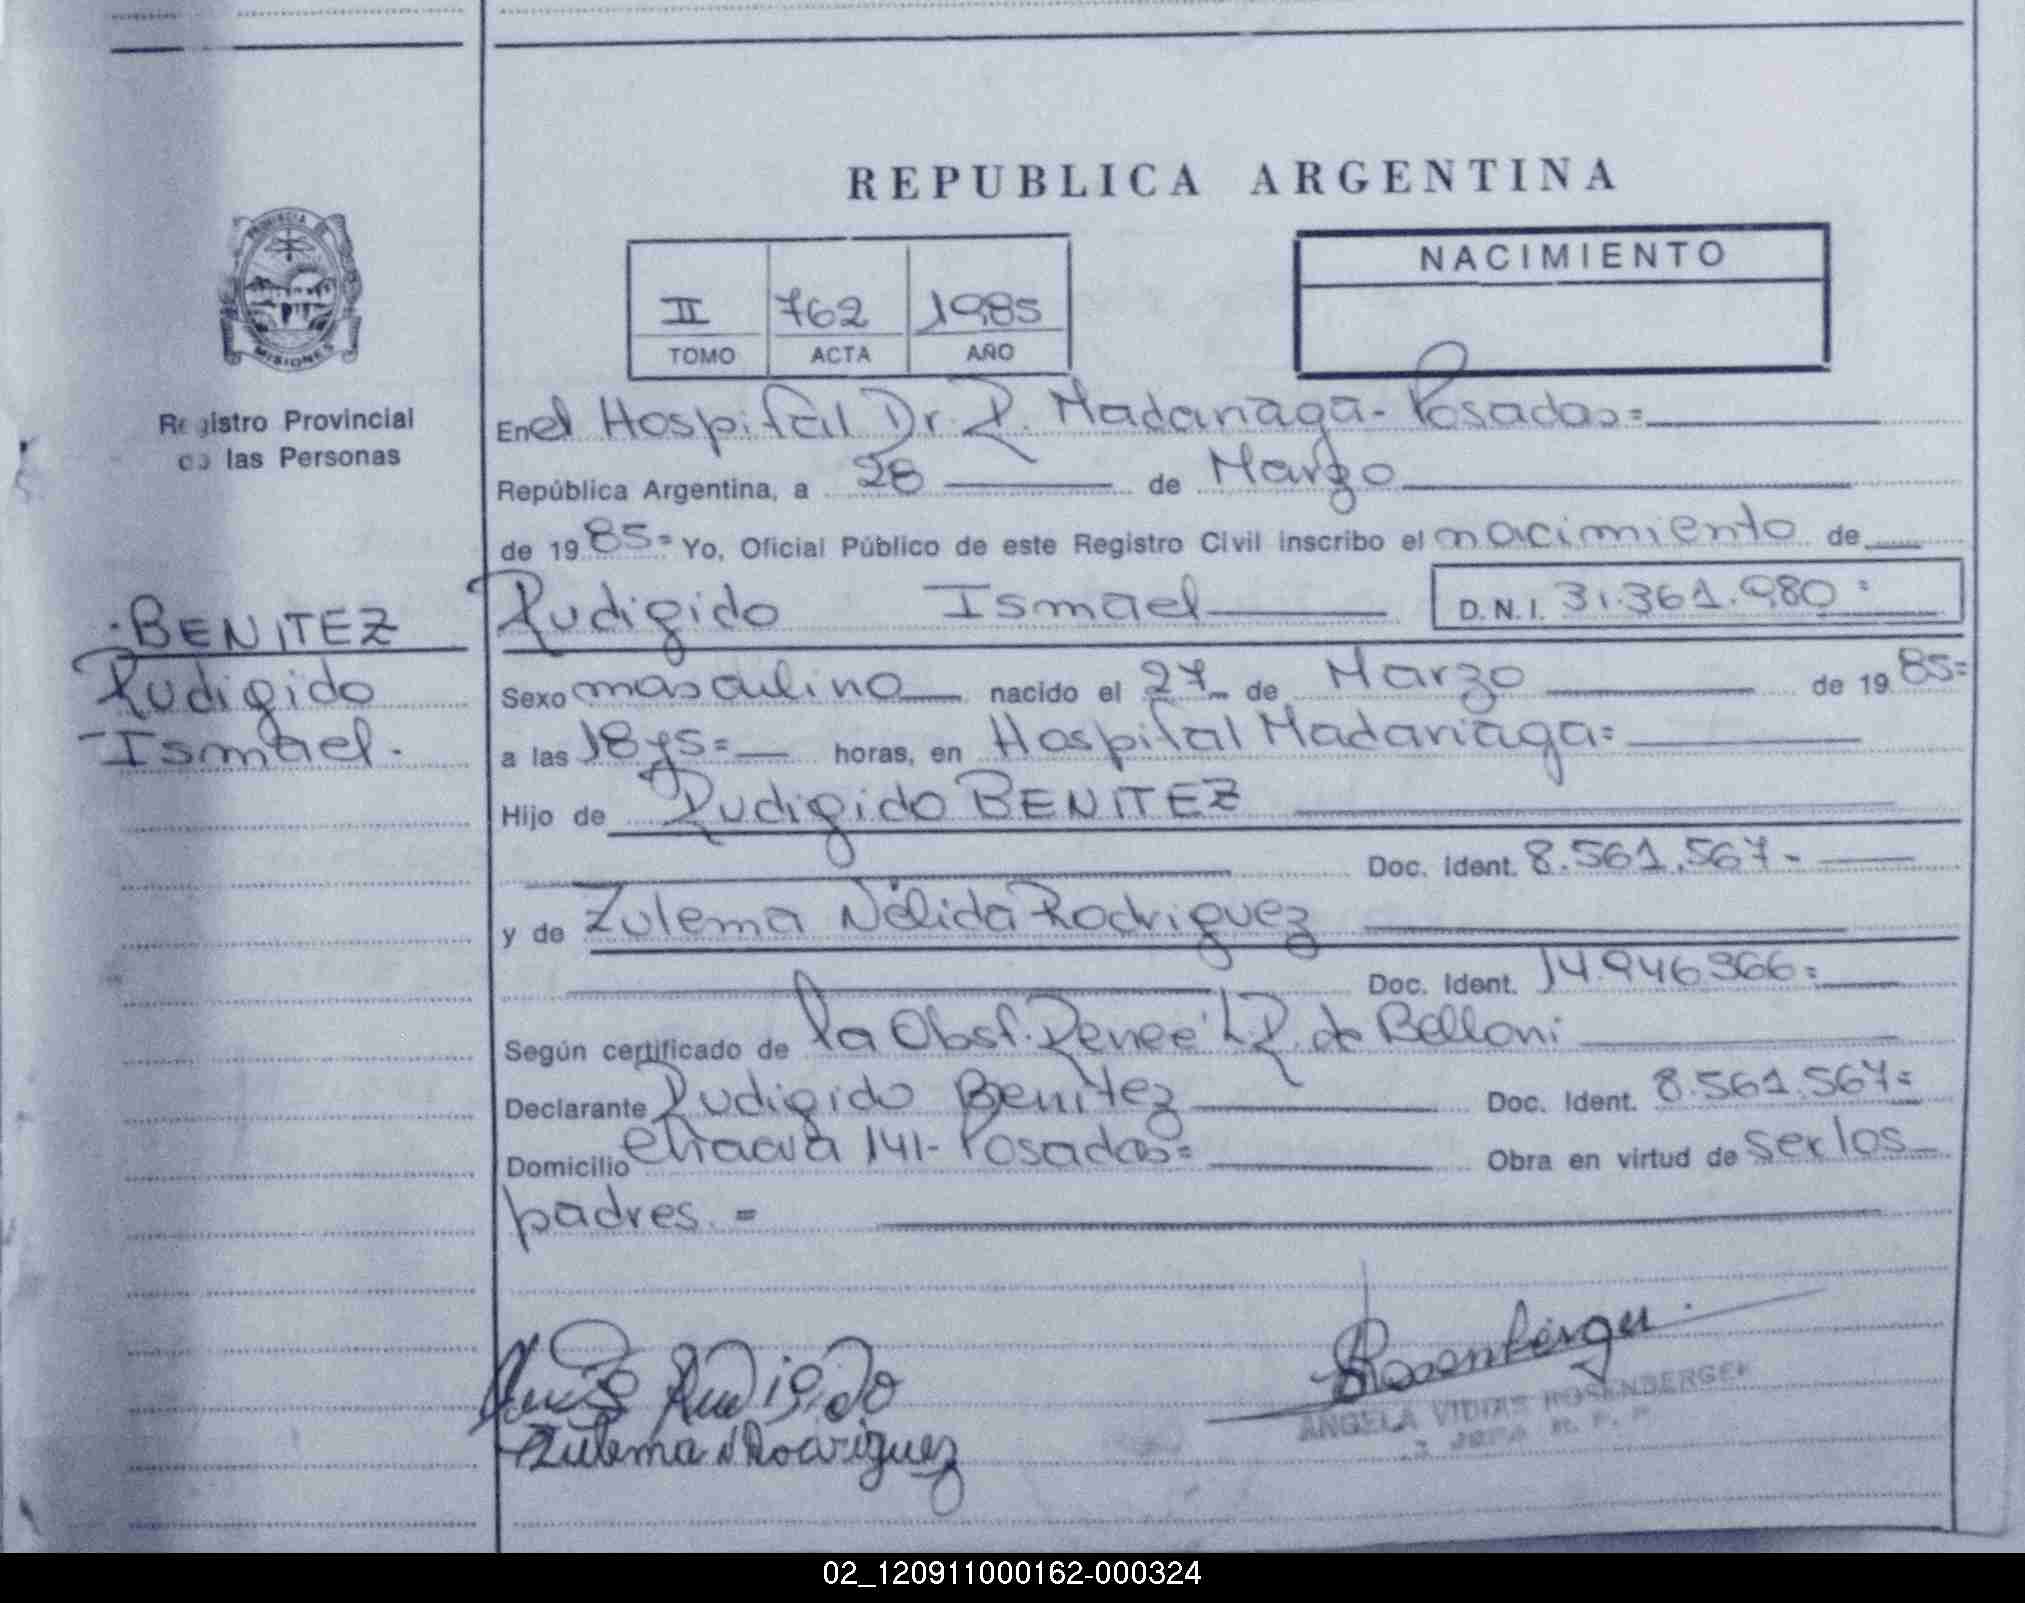 REPUBLICA ARGENTINA
PROVINCIA DE
MISIONES
Registro Provincial
de las Personas
II 762 1985
TOMO ACTA AÑO
NACIMIENTO
En el Hospital Dr. R. Madariaga - Posadas =
República Argentina, a 28 de Marzo
de 1985 = Yo, Oficial Público de este Registro Civil inscribo el nacimiento de
Rudigido Ismael D.N.I. 31.361.980 =
BENITEZ
Rudigido
Ismael.
Sexo masculino nacido el 27 de Marzo de 1985 =
a las 18 y 5 = horas, en Hospital Madariaga =
Hijo de Rudigido BENITEZ
Doc. Ident. 8.561.567 -
y de Zulema Nélida Rodriguez
Doc. Ident. 14.946.966 =
Según certificado de la Obst. Renee L.R. de Belloni
Declarante Rudigido Benitez Doc. Ident. 8.561.567 =
Domicilio Chacra 141 - Posadas = Obra en virtud de ser los
padres. =
Rudigido
Zulema N Rodriguez
Rosenberger
ANGELA ROSENBERGER
02_120911000162-000324